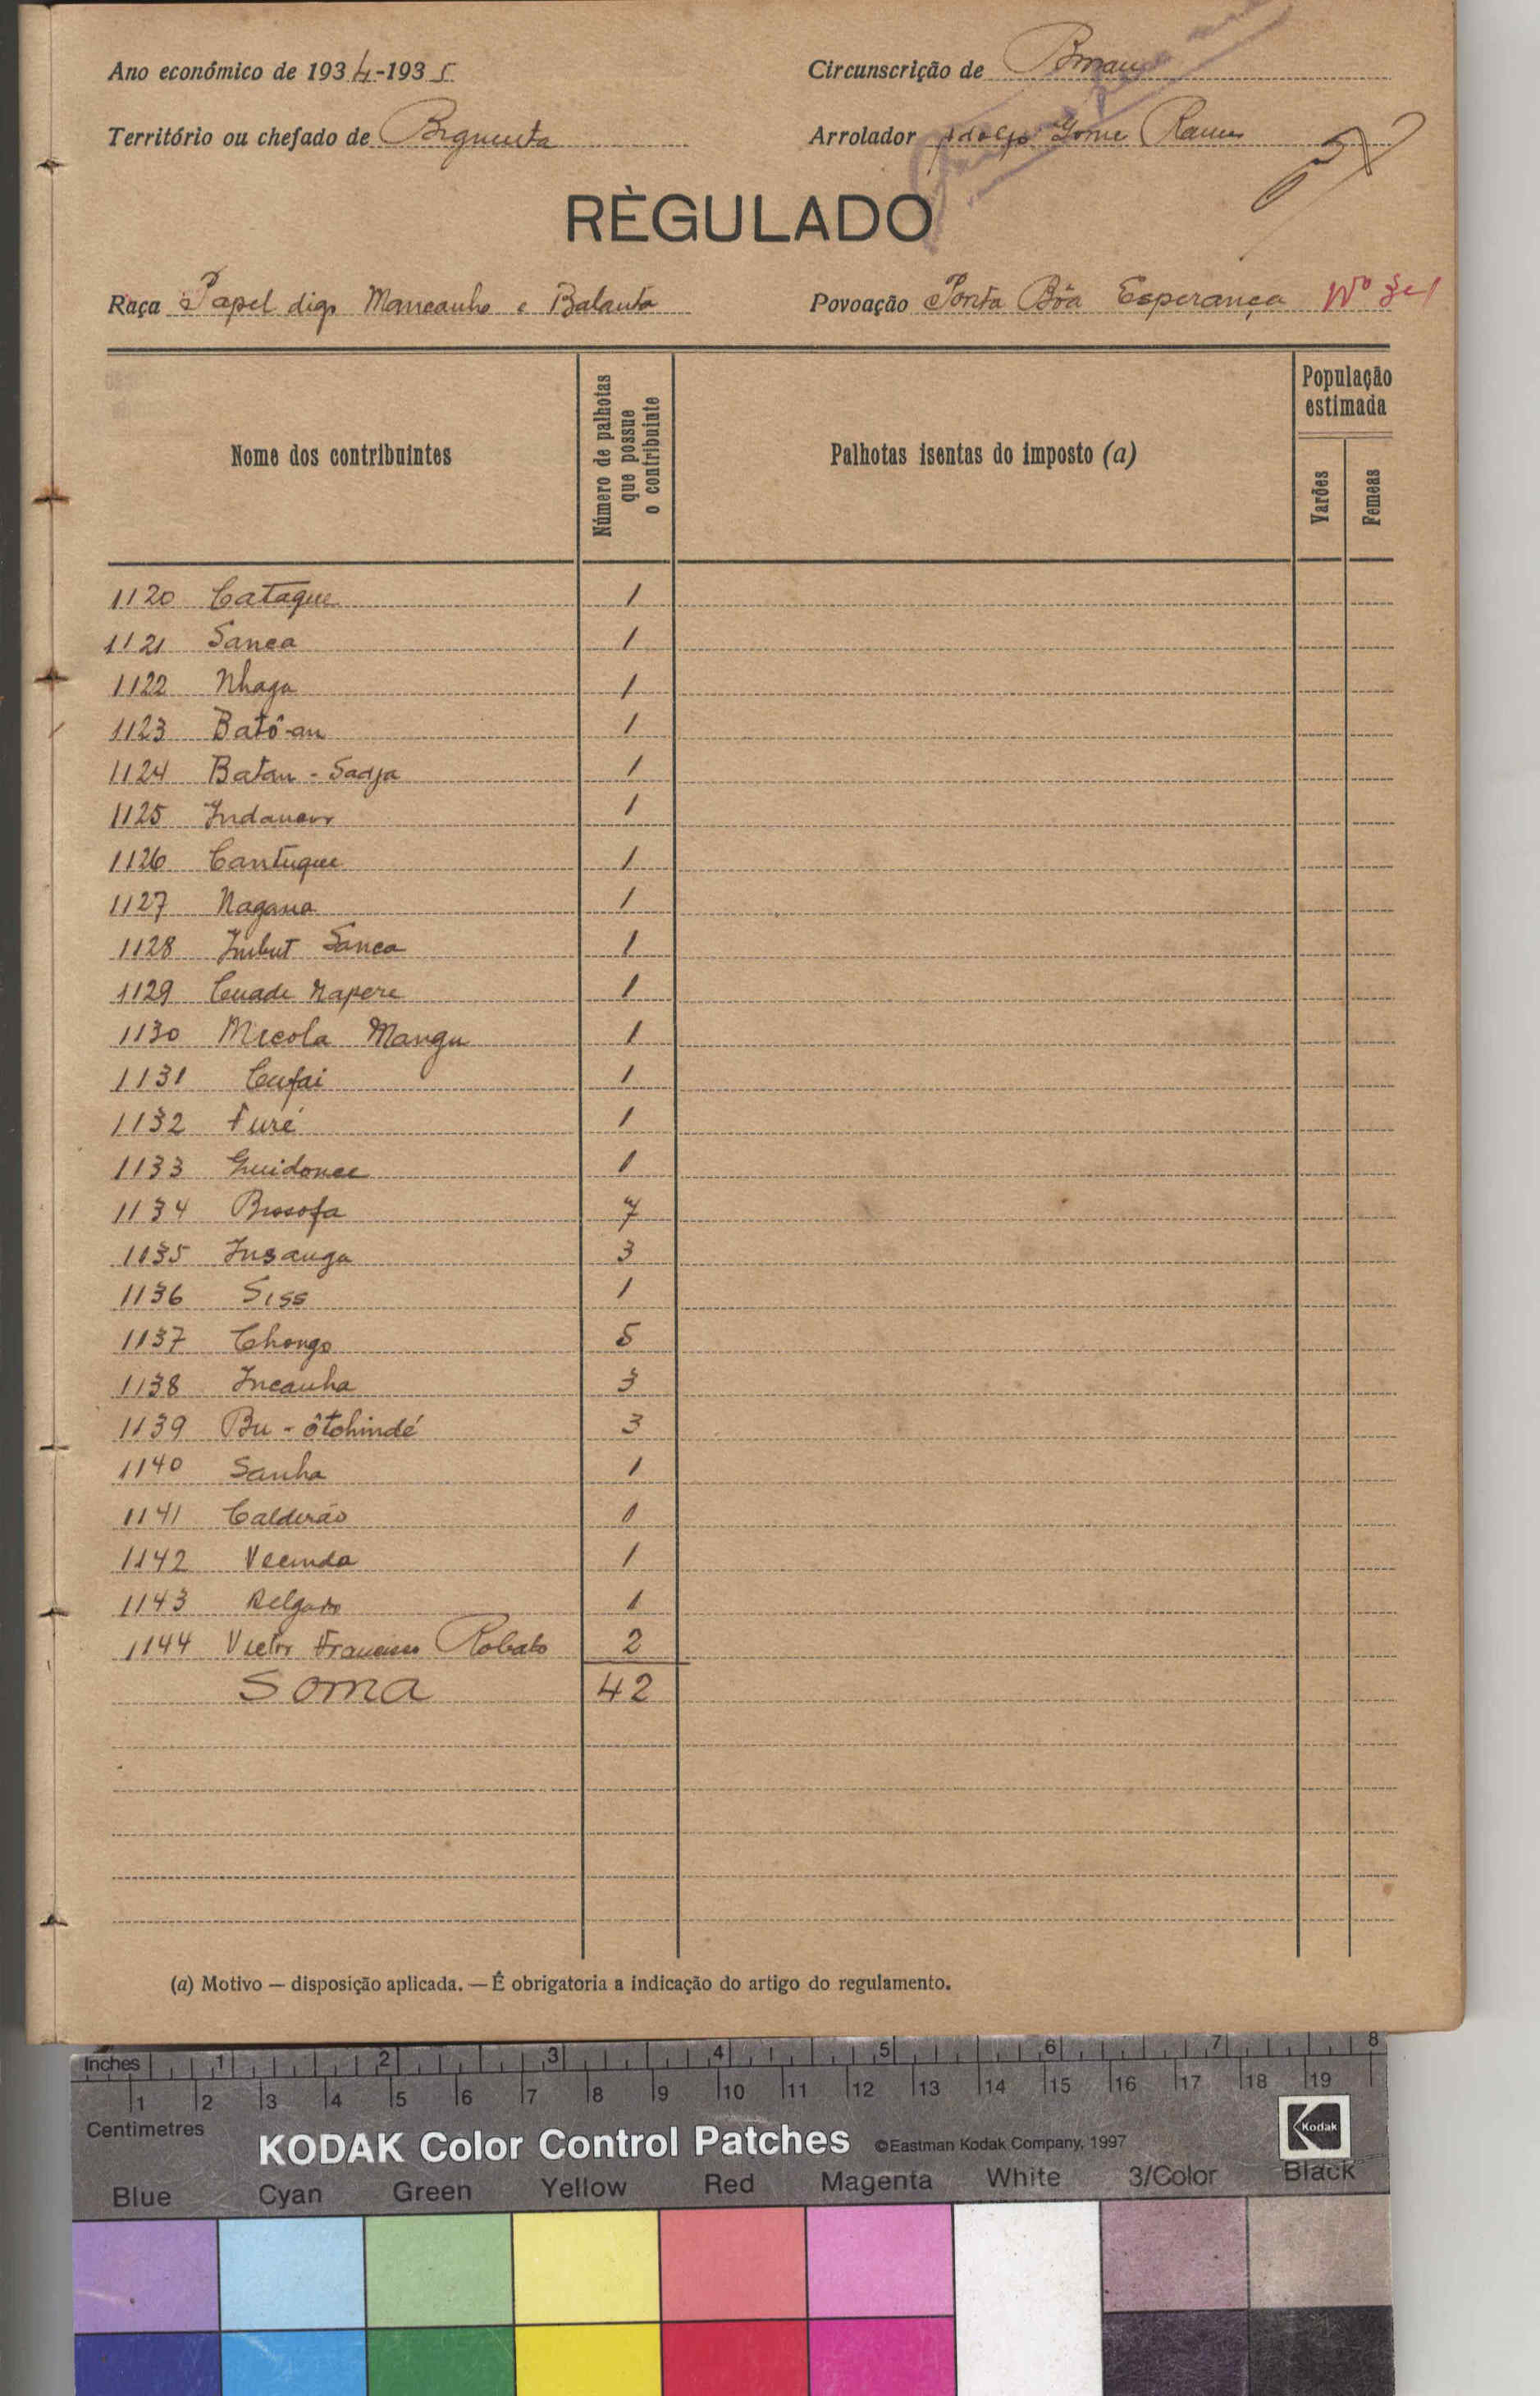 Ano económico de 1934-1935
Circunscrição de
Território ou chefado de
Arrolador Adolfo Gomes Ramos
RÈGULADO
Raça Papel digo Mancanho e Balanta
Povoação Ponta Bôa Esperança Nº
Nome dos contribuintes
Número de palhotas que possue o contribuinte
Palhotas isentas do imposto (a)
População estimada
Varões
Femeas
1120 Cataque 1
1121 Sanca 1
1122 Nhaga 1
1123 Batô-an 1
1124 Batan - Sadja 1
1125 1
1126 Cantuque 1
1127 Nagana 1
1128 Imbut Sanca 1
1129 Cuade Napere 1
1130 Micola Mangu 1
1131 Cufai 1
1132 Turé 1
1133 Guidonce 1
1134 Bissofa 7
1135 Insanga 3
1136 Siss 1
1137 Chongo 5
1138 Incanha 3
1139 Bu - ôtchindé 3
1140 Sanha 1
1141 Calderão 1
1142 1
1143 Delgado 1
1144 Victor Francisco Robalo 2
Soma 42
(a) Motivo — disposição aplicada. — É obrigatoria a indicação do artigo do regulamento.
Inches 1 2 3 4 5 6 7 8
1 2 3 4 5 6 7 8 9 10 11 12 13 14 15 16 17 18 19
Centimetres
KODAK Color Control Patches ©Eastman Kodak Company, 1997 Kodak
Blue Cyan Green Yellow Red Magenta White 3/Color Black